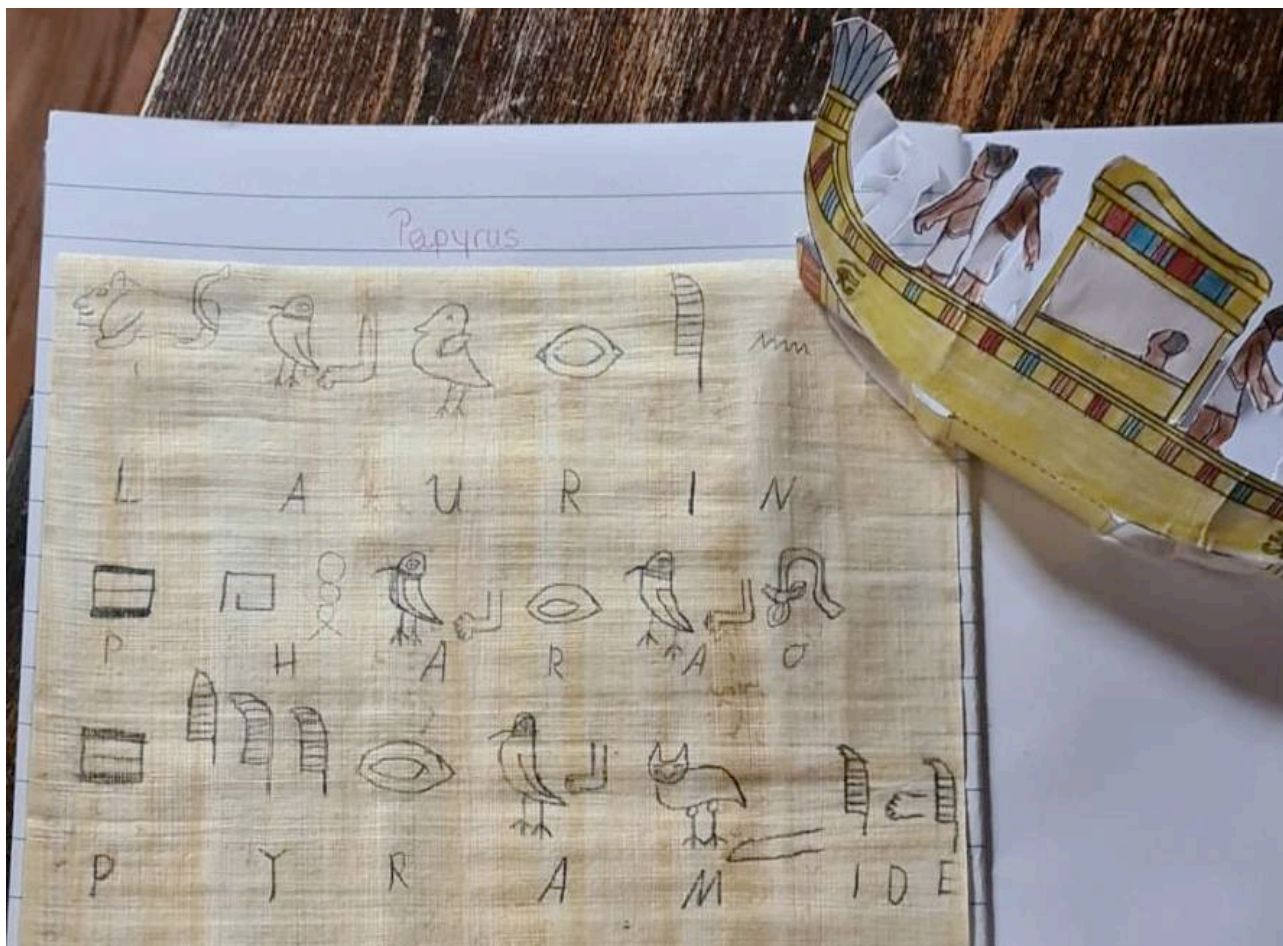 Papyrus
L A U R I N
P H A R A O
P Y R A M I D E